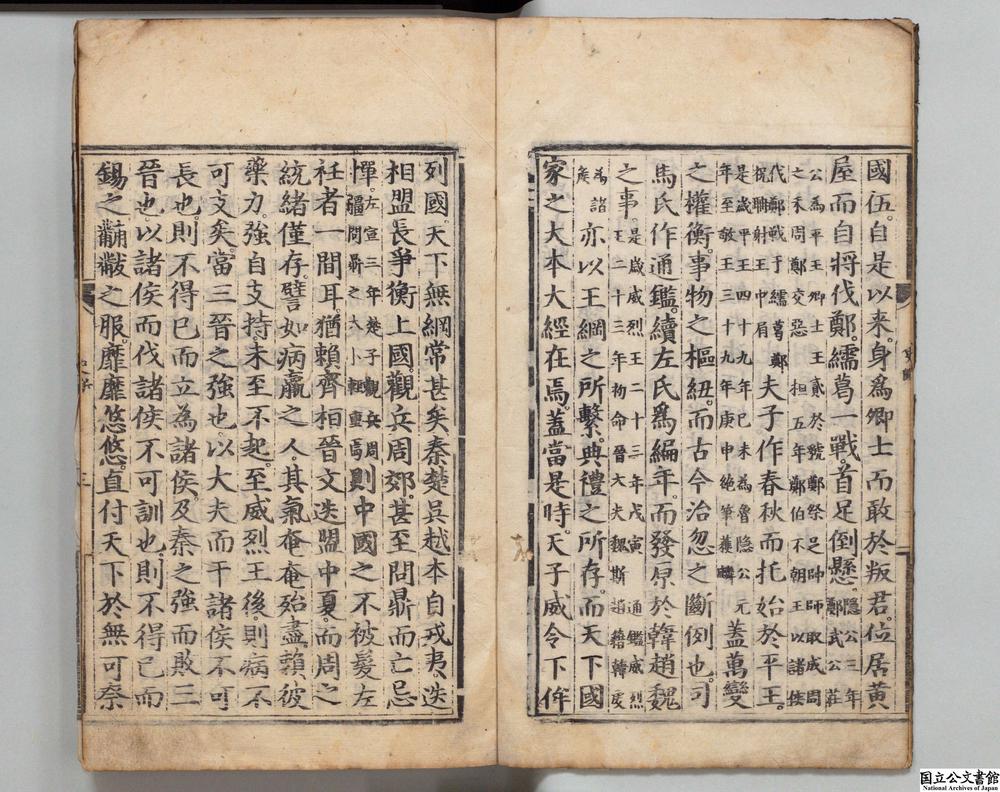 國伍。自是以来。身爲卿士而敢於叛君。位居黄
屋而自將伐鄭。繻葛一戰。首足倒懸。隱公三年鄭武公莊
公爲平王卿士王貳於虢鄭祭足帥師取成周之禾周鄭交惡桓五年鄭伯不朝王以諸侯
伐鄭戰于繻葛鄭祝聃射王中肩夫子作春秋而托始於平王。
是歲平王四十九年巳未為魯隱公元年至敬王三十九年庚申絶筆獲麟蓋萬變
之權衡。事物之樞紐。而古今治忽之斷例也。司
馬氏作通鑑。續左氏爲編年。而發原於韓趙魏
之事。是歲威烈王二十三年戊寅通鑑威烈王二十三年初命晉大夫魏斯趙藉韓虔
為諸矦亦以王綱之所繫。典禮之所存。而天下國
家之大本大經在焉。蓋當是時。天子威令下侔
列國。天下無綱常甚矣秦楚吳越本自戎夷、迭
相盟。長爭衡上國。觀兵周郊。甚至問鼎而亡忌
憚。左宣三年楚子觀兵周疆問鼎之大小輕重焉則中國之不被髮左
衽者一間耳。猶賴齊桓晉文迭盟中夏。而周之
統緒僅存。譬如病羸之人。其氣奄奄殆盡。賴彼
藥力。強自支持。未至不起。至威烈王後。則病不
可支矣。當三晉之強也。以大夫而干諸侯不可
長也則不得已而立為諸侯。及秦之強而敗三
晉也以諸侯而伐諸侯不可訓也。則不得已而
錫之黼黻之服。靡靡悠悠。直付天下於無可奈
国立公文書館
National Archives of Japan